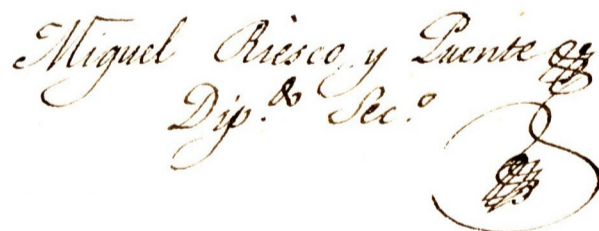 Miguel Riesco y Puente
Dip.do Sec.o